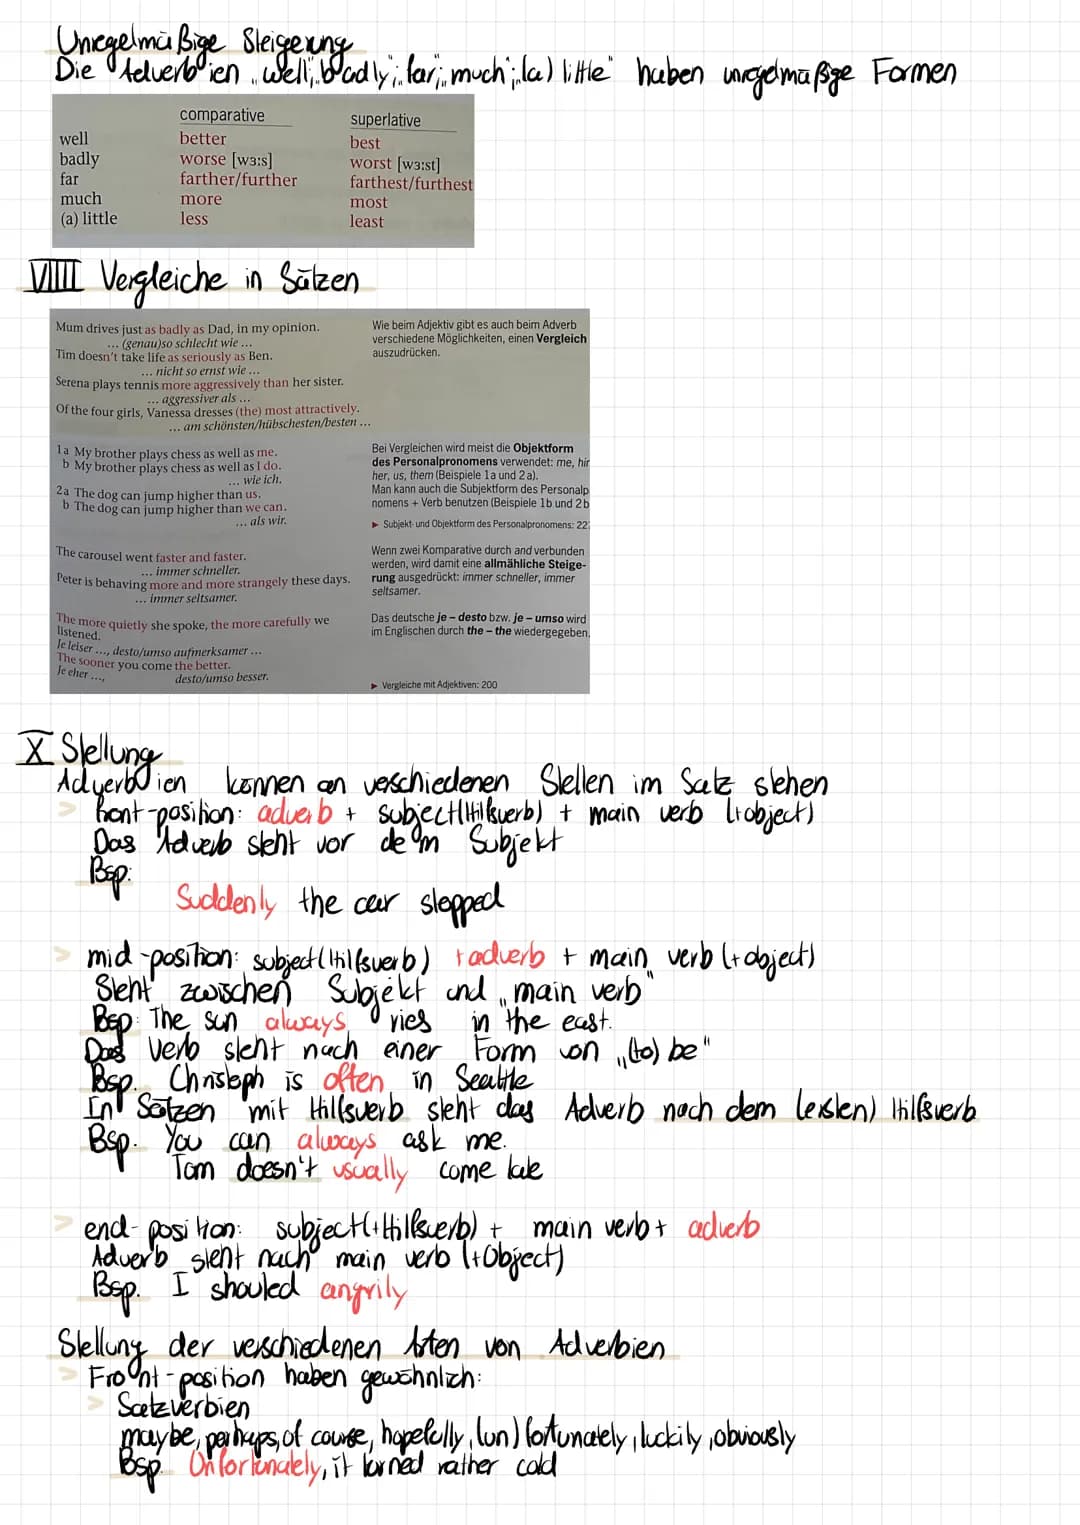 Unregelmäßige Steigerung
Die Adverbien „well", „badly", „far", „much", „(a) little" haben unregelmäßige Formen
comparative superlative
well better best
badly worse [wɜːs] worst [wɜːst]
far farther/further farthest/furthest
much more most
(a) little less least
VIIII Vergleiche in Sätzen
Mum drives just as badly as Dad, in my opinion.
... (genau)so schlecht wie ...
Tim doesn't take life as seriously as Ben.
... nicht so ernst wie ...
Serena plays tennis more aggressively than her sister.
... aggressiver als ...
Of the four girls, Vanessa dresses (the) most attractively.
... am schönsten/hübschesten/besten ...
Wie beim Adjektiv gibt es auch beim Adverb
verschiedene Möglichkeiten, einen Vergleich
auszudrücken.
1a My brother plays chess as well as me.
b My brother plays chess as well as I do.
... wie ich.
2a The dog can jump higher than us.
b The dog can jump higher than we can.
... als wir.
Bei Vergleichen wird meist die Objektform
des Personalpronomens verwendet: me, hi
her, us, them (Beispiele 1a und 2a).
Man kann auch die Subjektform des Personalp
nomens + Verb benutzen (Beispiele 1b und 2b
▶ Subjekt- und Objektform des Personalpronomens: 22
The carousel went faster and faster.
... immer schneller.
Peter is behaving more and more strangely these days.
... immer seltsamer.
Wenn zwei Komparative durch and verbunden
werden, wird damit eine allmähliche Steige-
rung ausgedrückt: immer schneller, immer
seltsamer.
The more quietly she spoke, the more carefully we
listened.
Je leiser ..., desto/umso aufmerksamer ...
The sooner you come the better.
Je eher ..., desto/umso besser.
Das deutsche je – desto bzw. je – umso wird
im Englischen durch the – the wiedergegeben.
▶ Vergleiche mit Adjektiven: 200
X Stellung
Adverbien können an verschiedenen Stellen im Satz stehen
> front-position: adverb + subject(Hilfsverb) + main verb (+object)
Das Adverb steht vor dem Subjekt
Bsp:
Suddenly the car stopped
> mid-position: subject(Hilfsverb) + adverb + main verb (+object)
Steht zwischen Subjekt und „main verb"
Bsp: The sun always ries in the east.
Das Verb steht nach einer Form von „(to) be"
Bsp. Christoph is often in Seattle
In Sätzen mit Hilfsverb steht das Adverb nach dem (ersten) Hilfsverb
Bsp. You can always ask me.
Tom doesn't usually come late
> end-position: subject(+Hilfsverb) + main verb + adverb
Adverb steht nach main verb (+Object)
Bsp. I shouted angrily
Stellung der verschiedenen Arten von Adverbien
> Front-position haben gewöhnlich:
> Satzverbien
maybe, perhaps, of course, hopefully, (un)fortunately, luckily, obviously
Bsp. Unfortunately, it turned rather cold